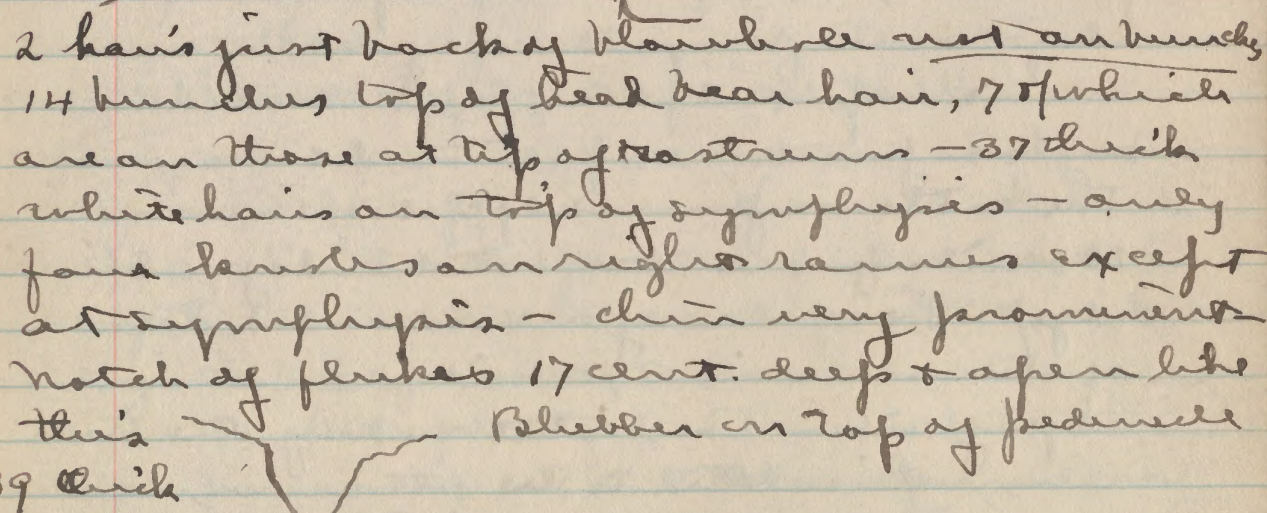 2 hairs just back of blowhole not on bunches
14 bunches top of head bear hair, 7 of which
are on those at tip of rostrum - 37 thick
white hairs on top of symphysis - only
four knobs on right ramus except
at symphysis - chin very prominent
Notch of flukes 17 cent. deep & open like
this Blubber on top of peduncle
39 thick